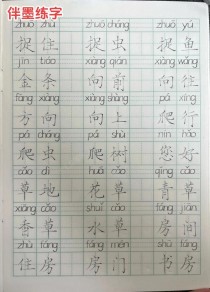 伴墨练字
zhuō zhù zhuō chóng zhuō yú
捉住 捉虫 捉鱼
jīn tiáo xiàng qián xiàng wǎng
金条 向前 向往
fāng xiàng xiàng shàng pá xíng
方向 向上 爬行
pá chóng pá shù nín hǎo
爬虫 爬树 您好
cǎo dì huā cǎo qīng cǎo
草地 花草 青草
xiāng cǎo shuǐ cǎo fáng jiān
香草 水草 房间
zhù fáng fáng mén shū fáng
住房 房门 书房